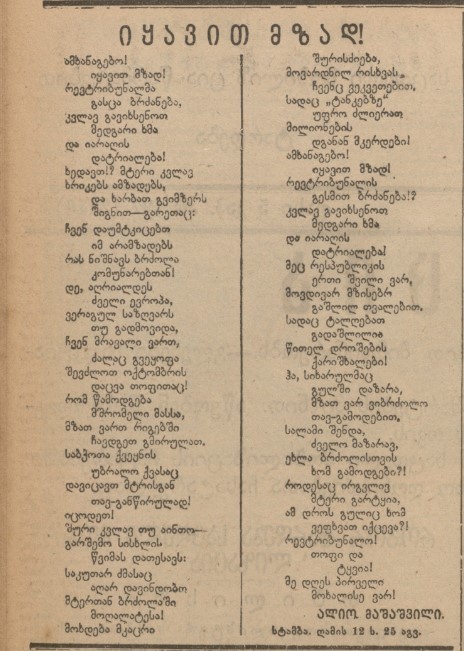 იყავით მზად!
ამხანაგებო!
იყავით მზად!
რევტრიბუნალმა
გასცა ბრძანება,
კვლავ გავიხსენოთ
მედგარი ხმა
და იარაღის
დატრიალება!
ხედავთ!? მტერი კვლავ
ხრიკებს ამზადებს,
და ხარბათ გვიმზერს
შიგნით—გარეთაც:
ჩვენ დაუმტკიცებთ
იმ არამზადებს
რას ნიშნავს ბრძოლა
კომუნარებთან!
დე, აღრიალდეს
ძველი ევროპა,
ვერაგულ საზღვარს
თუ გადმოვიდა,
ჩვენ მრავალი ვართ,
ძალაც გვეყოფა
შევძლოთ ოქტომბრის
დაცვა თოფითაც!
რომ წამოდგება
მშრომელი მასსა,
მზათ ვართ რიგებში
ჩავდგეთ გმირულათ.
საბჭოთა ქვეყნის
უბრალო ქვასაც
დავიცავთ მტრისგან
თავ-განწირულად!
იცოდეთ!
შური კვლავ თუ აინთო—
გარშემო სისხლის
წვიმას დათესავს:
საკუთარ ძმასაც
აღარ დავინდობთ
მტერთან ბრძოლაში
მოღალატესა!
მოხდება მკაცრი
შურისძიება,
მოვარდნილ რისხვას
ჩვენც ვეკვეთებით,
სადაც „ტანკებზე“
უფრო ძლიერათ
მილიონების
დგანან მკერდები!
ამხანაგებო!
იყავით მზად!
რევტრიბუნალის
გესმით ბრძანება!?
კვლავ გავიხსენოთ
მედგარი ხმა
და იარაღის
დატრიალება!
მეც რესპუბლიკის
ერთი შვილი ვარ,
მოვდივარ მზისებრ
გაშლილ თვალებით,
სადაც ტალღებათ
გადაშლილია
წითელ დროშების
ქარიშხალები!
ჰა, სიხარულმაც
გულში დაზარა,
მზათ ვარ ვიბრძოლო
თავ-გამოდებით,
სალამი შენდა,
ძველო მაზარავ,
ეხლა ბრძოლისთვის
ხომ გამოდგები?!
როდესაც ირგვლივ
მტერი გარტყია,
ამ დროს გულიც ხომ
ვეფხვათ იქცევა?!
რევტრიბუნალო!
თოფი და
ტყვია!
მე დღეს პირველი
მოხალისე ვარ!
ალიო მაშაშვილი.
სტამბა. ღამის 12 ს. 25 აგვ.